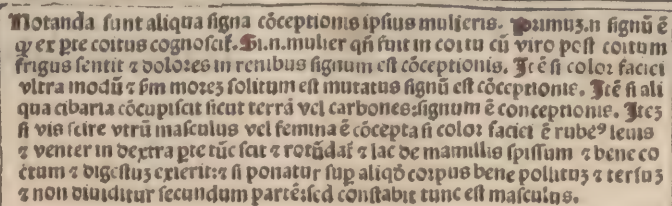 Notanda sunt aliqua signa cōceptionis ipsius mulieris. Primuꝫ.n signū ē
ꝙ ex ꝑte coitus cognoscit᷑. Si.n.mulier qñ fuit in coitu cū viro post coitum
frigus sentit ⁊ dolores in renibus signum est cōceptionis. Itē si color faciei
vltra modū ⁊ ẜm moreꝫ solitum est mutatus signū est cōceptionis. Itē si ali
qua cibaria cōcupiscit sicut terrā vel carbones:signum ē conceptionis. Iteꝫ
si vis scire vtrū masculus vel femina ē cōcepta si color faciei ē rubeꝰ leuis
⁊ venter in dextra ꝑte tūc scit ⁊ rotūdat᷑ ⁊ lac de mamillis spissum ⁊ bene co
ctum ⁊ digestuꝫ exierit:⁊ si ponatur suꝑ aliqđ corpus bene pollituꝫ ⁊ tersuꝫ
⁊ non diuiditur secundum partē:sed constabit tunc est masculus.